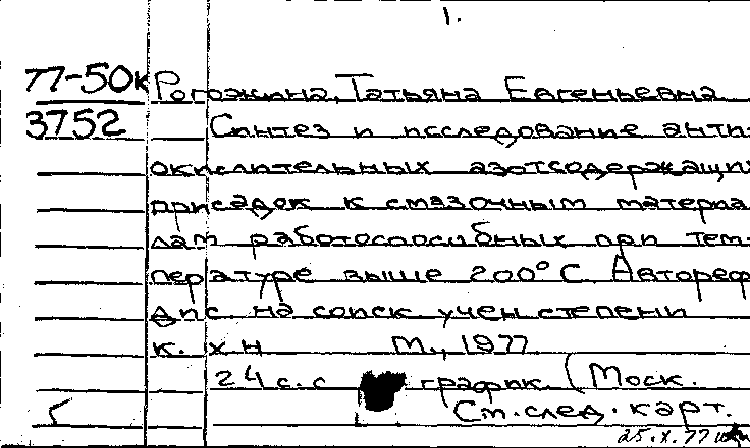 1.
77-50к Рогожкина, Татьяна Евгеньевна
3752 Синтез и исследование анти-
окислительных азотсодержащих
присадок к смазочным материа-
лам работоспособных при тем-
пературе выше 200° С. Автореф.
дис на соиск учен степени
к. х н М., 1977.
24 с. с график. (Моск.
См. след. карт.
25.X.77